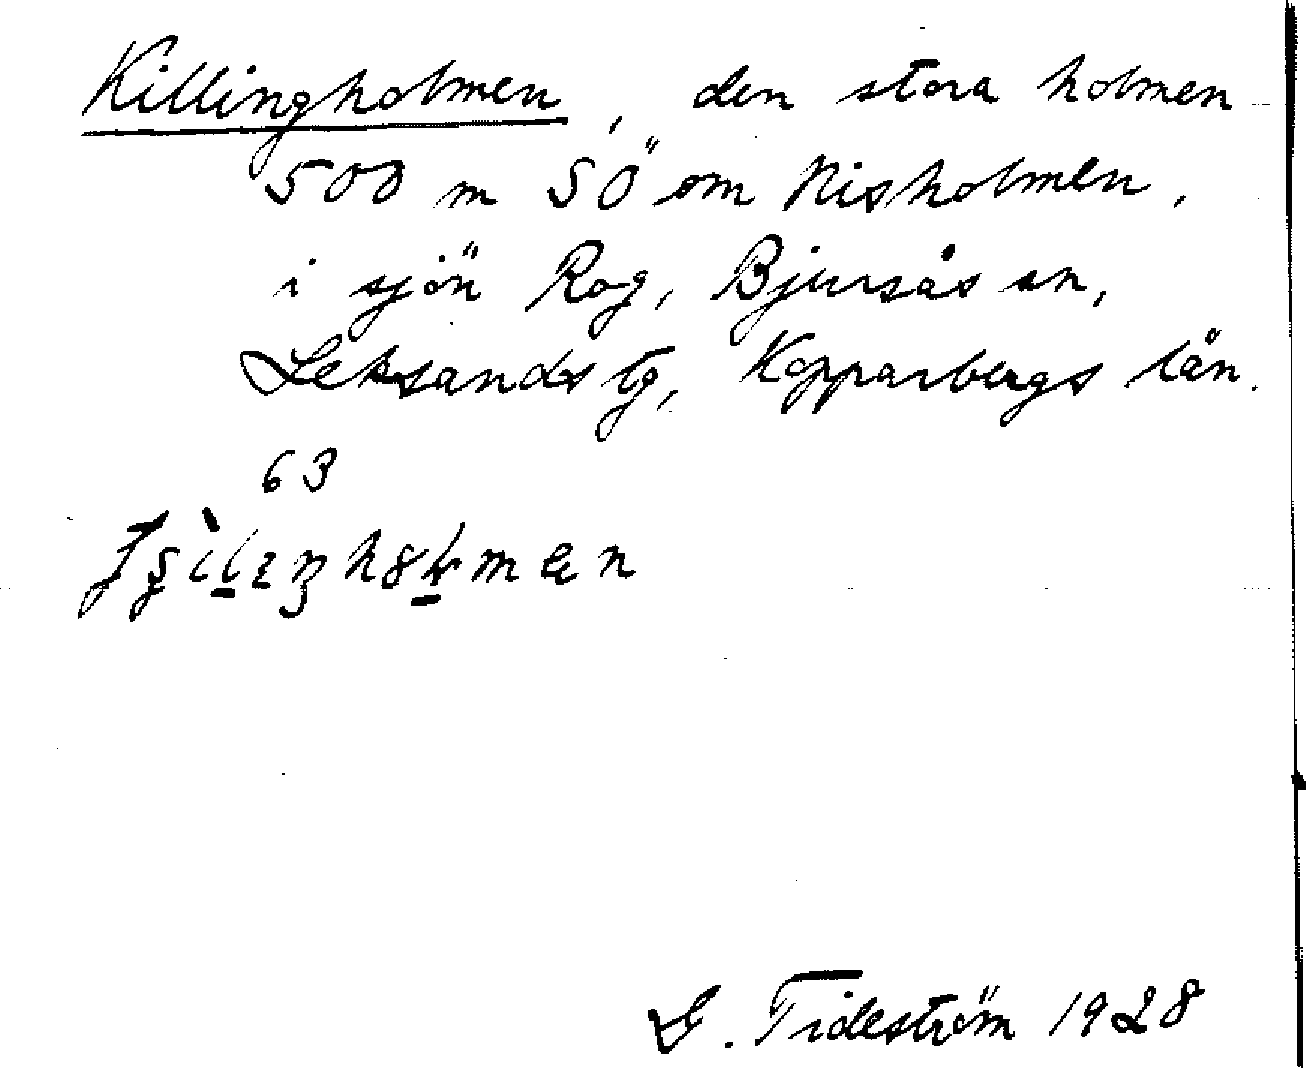 Killingholmen, den stora holmen
500 m SÖ om Nisholmen,
i sjön Rog, Bjursås sn,
Leksands tg, Kopparbergs län.
63
G. Tideström 1928